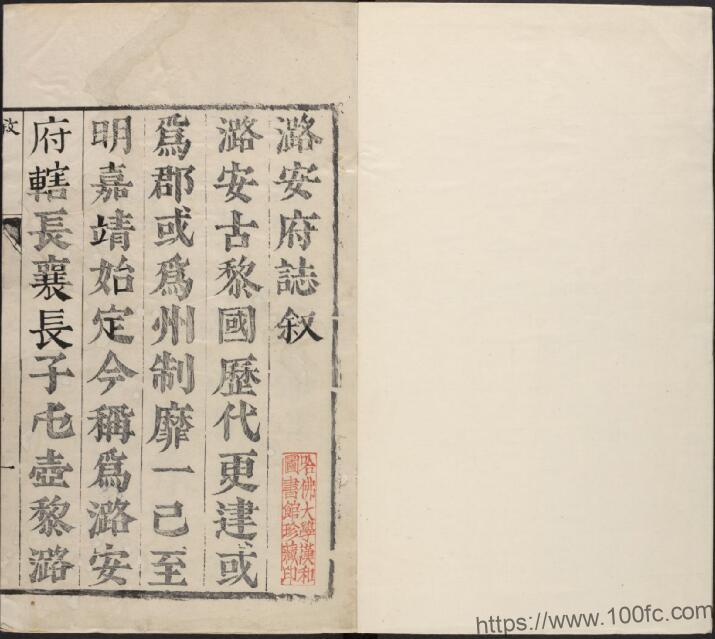 潞安府誌叙
潞安古黎國歷代更建或
爲郡或爲州制靡一已至
明嘉靖始定今稱爲潞安
府轄長襄長子屯壺黎潞
哈佛大學漢和
圖書館珍藏印
敘
一
https://www.100fc.com